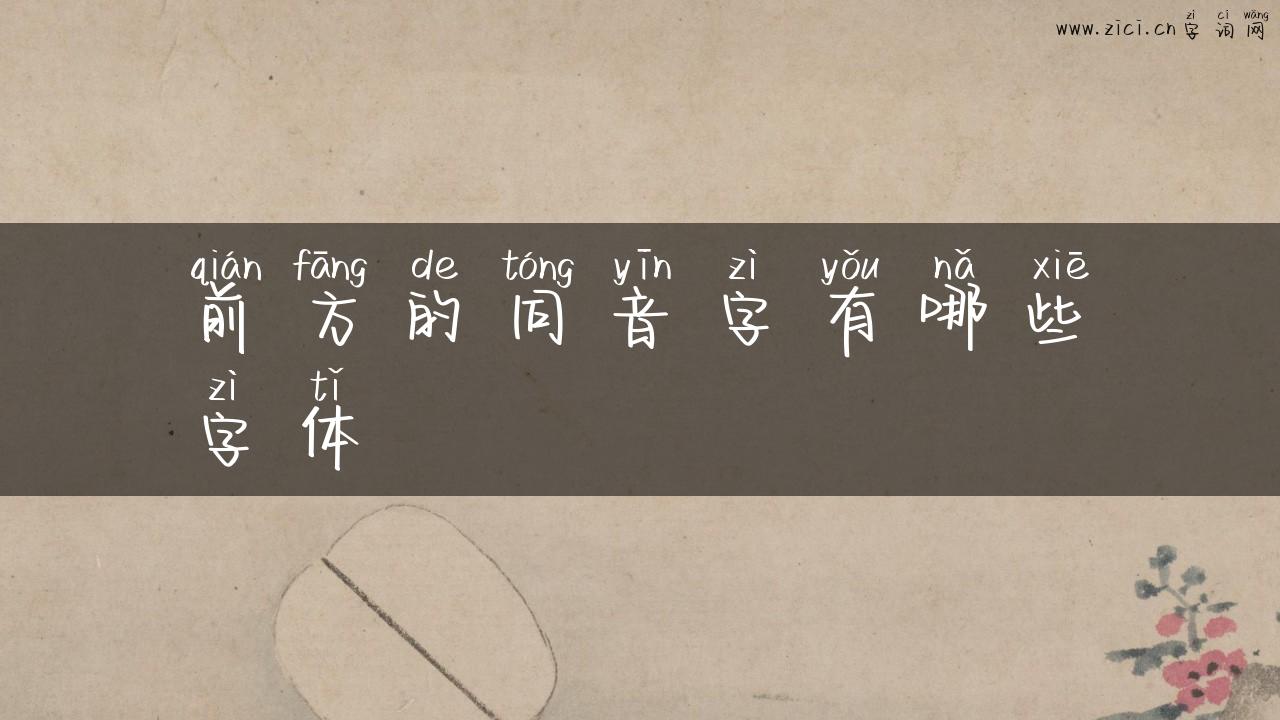 zì cí wǎng
www.zici.cn 字词网
qián fāng de tóng yīn zì yǒu nǎ xiē
前方的同音字有哪些
zì tǐ
字体